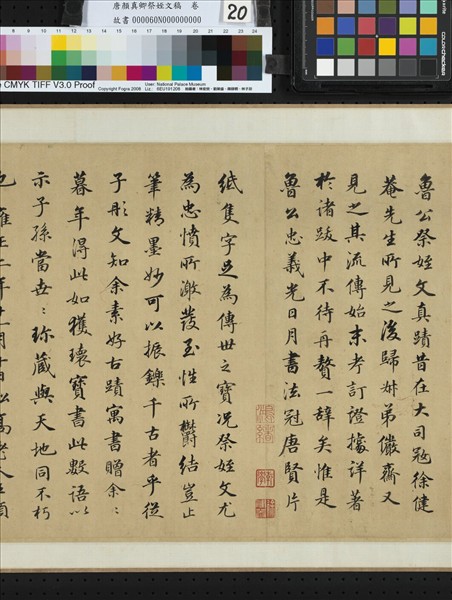 唐顏真卿祭姪文稿 卷
故書000060N000000000
20
CMYK TIFF V3.0 Proof
Copyright Fogra 2008
User: National Palace Museum
colorchecker
魯公祭姪文真蹟昔在大司寇徐健
菴先生所見之後歸姊弟儼齋又
見之其流傳始末考訂證據詳著
於諸跋中不待再贅一辭矣惟是
魯公忠義光日月書法冠唐賢片
紙隻字足為傳世之寶況祭姪文尤
為忠憤所激發至性所鬱結豈止
筆精墨妙可以振鑠千古者乎從
子彤文知余素好古蹟寓書贈余余
暮年得此如獲瓌寶書此數語以
示子孫當世世珍藏與天地同不朽